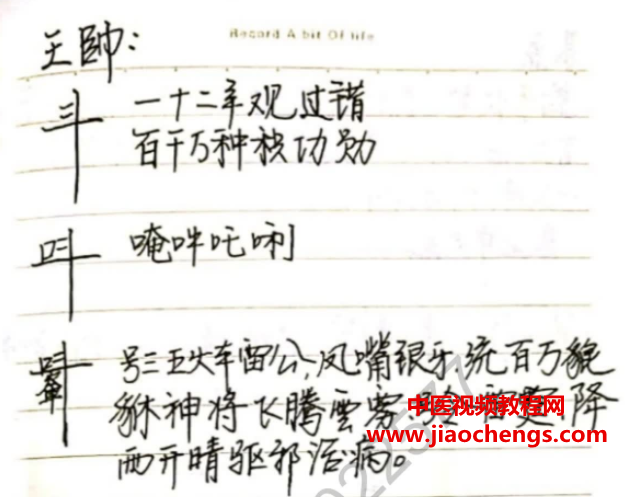 Record A bit Of life
王帥:
一十二年观过错
百千万种积功勋
唵吽吒唎
号三五火车雷公,凤嘴银牙,统百万貔
貅神将飞腾雲雾 降
雨开晴驱邪治病。
中医视频教程网
www.jiaochengs.com